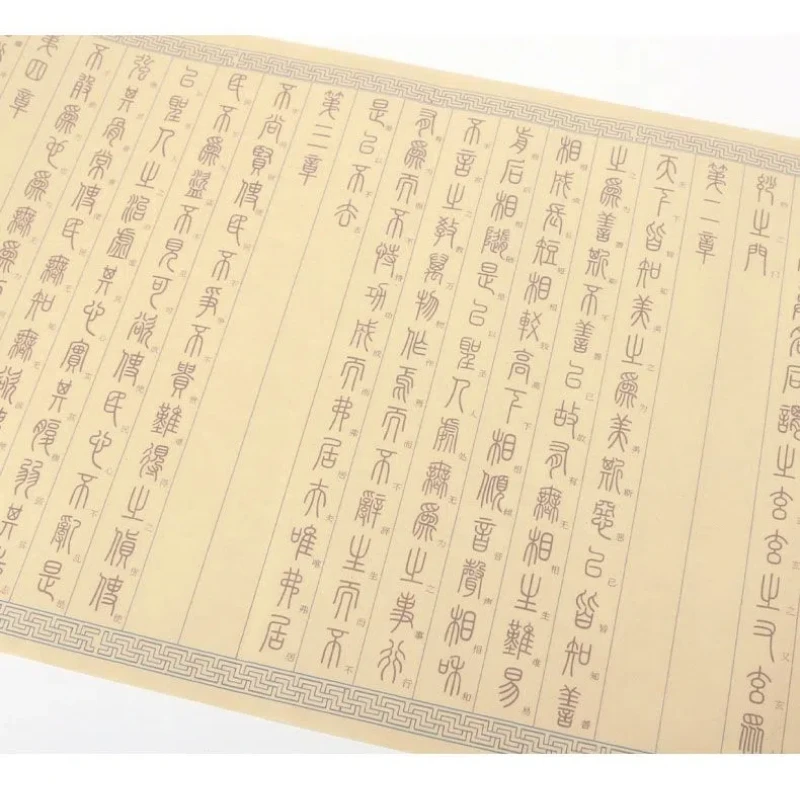 名同謂之玄玄之又玄眾
妙之門
第二章
天下皆知美之為美斯惡已皆知善
之為善斯不善已故有無相生難易
相成長短相較高下相傾音聲相和
前后相隨是以聖人處無為之事行
不言之教萬物作焉而不辭生而不
有為而不恃功成而弗居夫唯弗居
是以不去
第三章
不尚賢使民不爭不貴難得之貨使
民不為盜不見可欲使民心不亂是
以聖人之治虛其心實其腹弱其志
強其骨常使民無知無欲使
不敢為也為無為
第四章